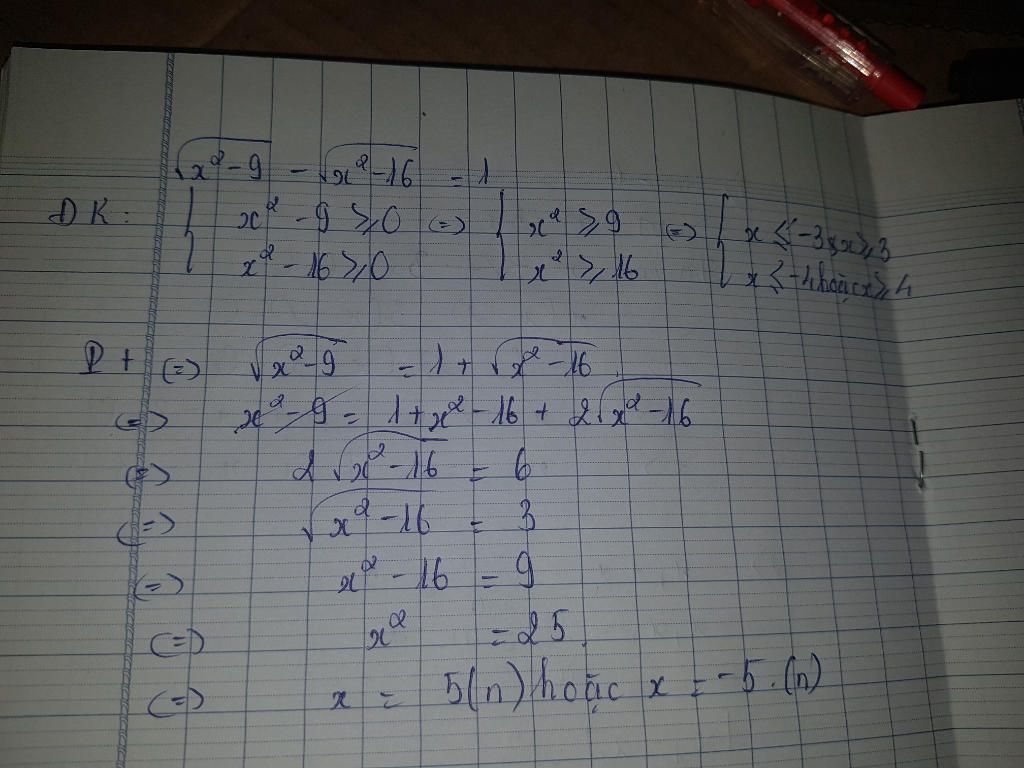 √(x² - 9) - √(x² - 16) = 1
ĐK: { x² - 9 ≥ 0 (=) { x² ≥ 9 (=) { x ≤ -3 x ≥ 3
{ x² - 16 ≥ 0 { x² ≥ 16 { x ≤ -4 hoặc x ≥ 4
(=) √(x² - 9) = 1 + √(x² - 16)
(=) x² - 9 = 1 + x² - 16 + 2√(x² - 16)
(=) 2√(x² - 16) = 6
(=) √(x² - 16) = 3
(=) x² - 16 = 9
(=) x² = 25
(=) x = 5 (n) hoặc x = -5. (n)